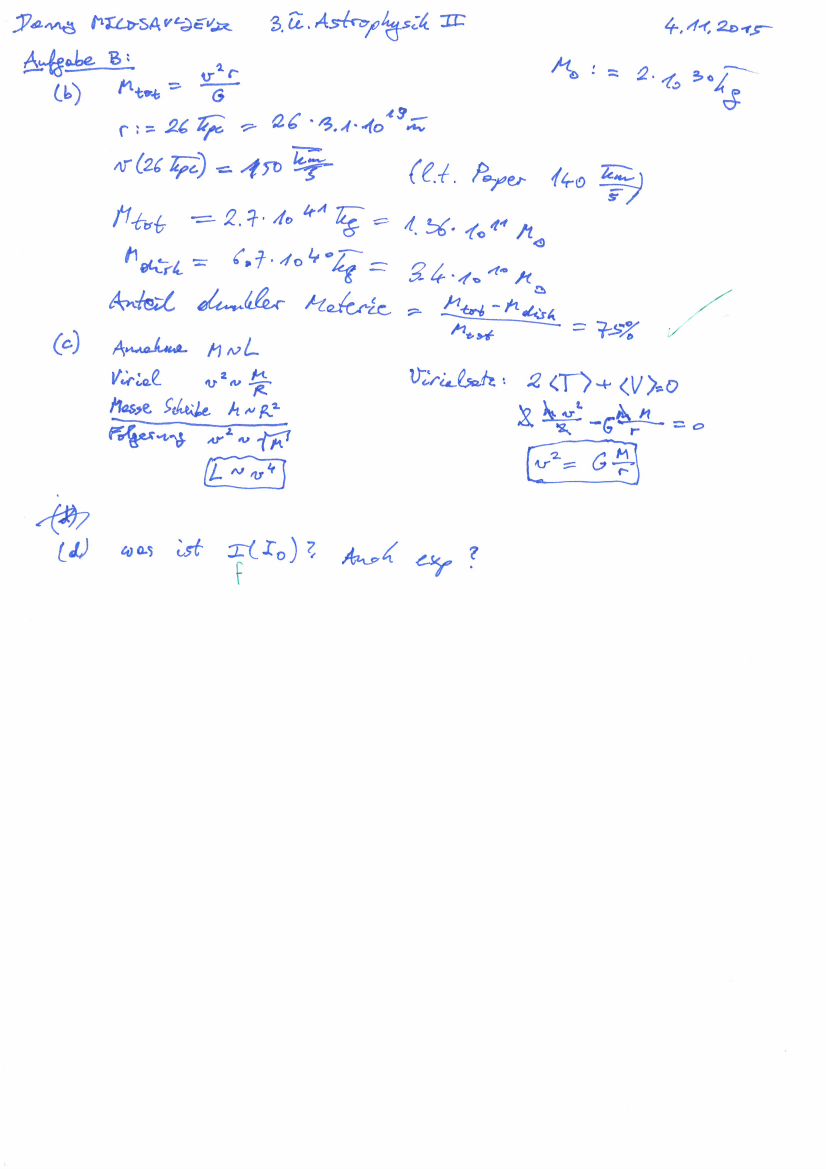 Danny MILOSAVLJEVIC 3.Ü. Astrophysik II 4.11.2015
Aufgabe B:
M⊙ := 2·10^30 kg
(b) M_tot = v²r / G
r := 26 kpc = 26 · 3.1 · 10^19 m
v(26 kpc) = 150 km/s (l.t. Paper 140 km/s)
M_tot = 2.7 · 10^41 kg = 1.36 · 10^11 M⊙
M_disk = 6.7 · 10^40 kg = 3.4 · 10^10 M⊙
Anteil dunkler Materie = (M_tot - M_disk) / M_tot = 75% ✓
(c) Annahme M ~ L
Virial v² ~ M/R Virialsatz: 2<T> + <V> = 0
Masse Scheibe M ~ R² 2 m v²/2 - G m M / r = 0
Folgerung v² ~ √M
L ~ v⁴ v² = G M/r
(d)
(d) was ist I(I₀)? Auch exp?
f